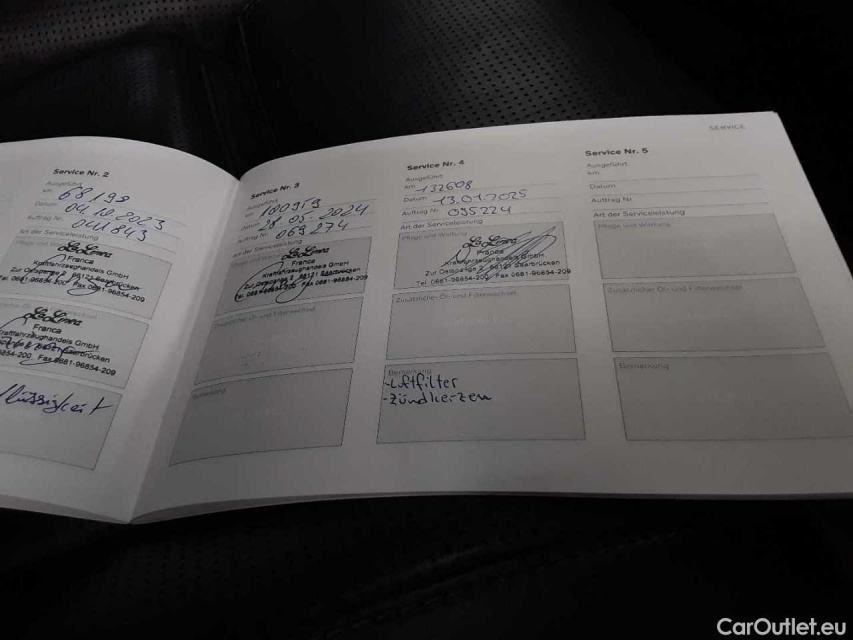 SERVICE
Service Nr. 2
Ausgeführt
km 68198
Datum 04.10.2023
Auftrag Nr. 041843
Art der Serviceleistung
Pflege und Wartung
La Linea
Franca
Kraftfahrzeughandels GmbH
Zur Ostspange 7 66121 Saarbrücken
Tel 0681-96854-200 Fax 0681-96854-209
La Linea
Franca
Kraftfahrzeughandels GmbH
Saarbrücken
96854-200 Fax 0681-96854-209
flüssigkeit
Service Nr. 3
Ausgeführt
km 100959
Datum 28.05.2024
Auftrag Nr. 069274
Art der Serviceleistung
Pflege und Wartung
La Linea
Franca
Kraftfahrzeughandels GmbH
Zur Ostspange 7 66121 Saarbrücken
Tel 0681-96854-200 Fax 0681-96854-209
Zusätzlicher Öl- und Filterwechsel
Bemerkung
Service Nr. 4
Ausgeführt
km 132608
Datum 13.01.2025
Auftrag Nr. 095224
Art der Serviceleistung
Pflege und Wartung
La Linea
Franca
Kraftfahrzeughandels GmbH
Zur Ostspange 7 66121 Saarbrücken
Tel 0681-96854-200 Fax 0681-96854-209
Zusätzlicher Öl- und Filterwechsel
Bemerkung
-Luftfilter
-Zündkerzen
Service Nr. 5
Ausgeführt
km
Datum
Auftrag Nr.
Art der Serviceleistung
Pflege und Wartung
Zusätzlicher Öl- und Filterwechsel
Bemerkung
CarOutlet.eu